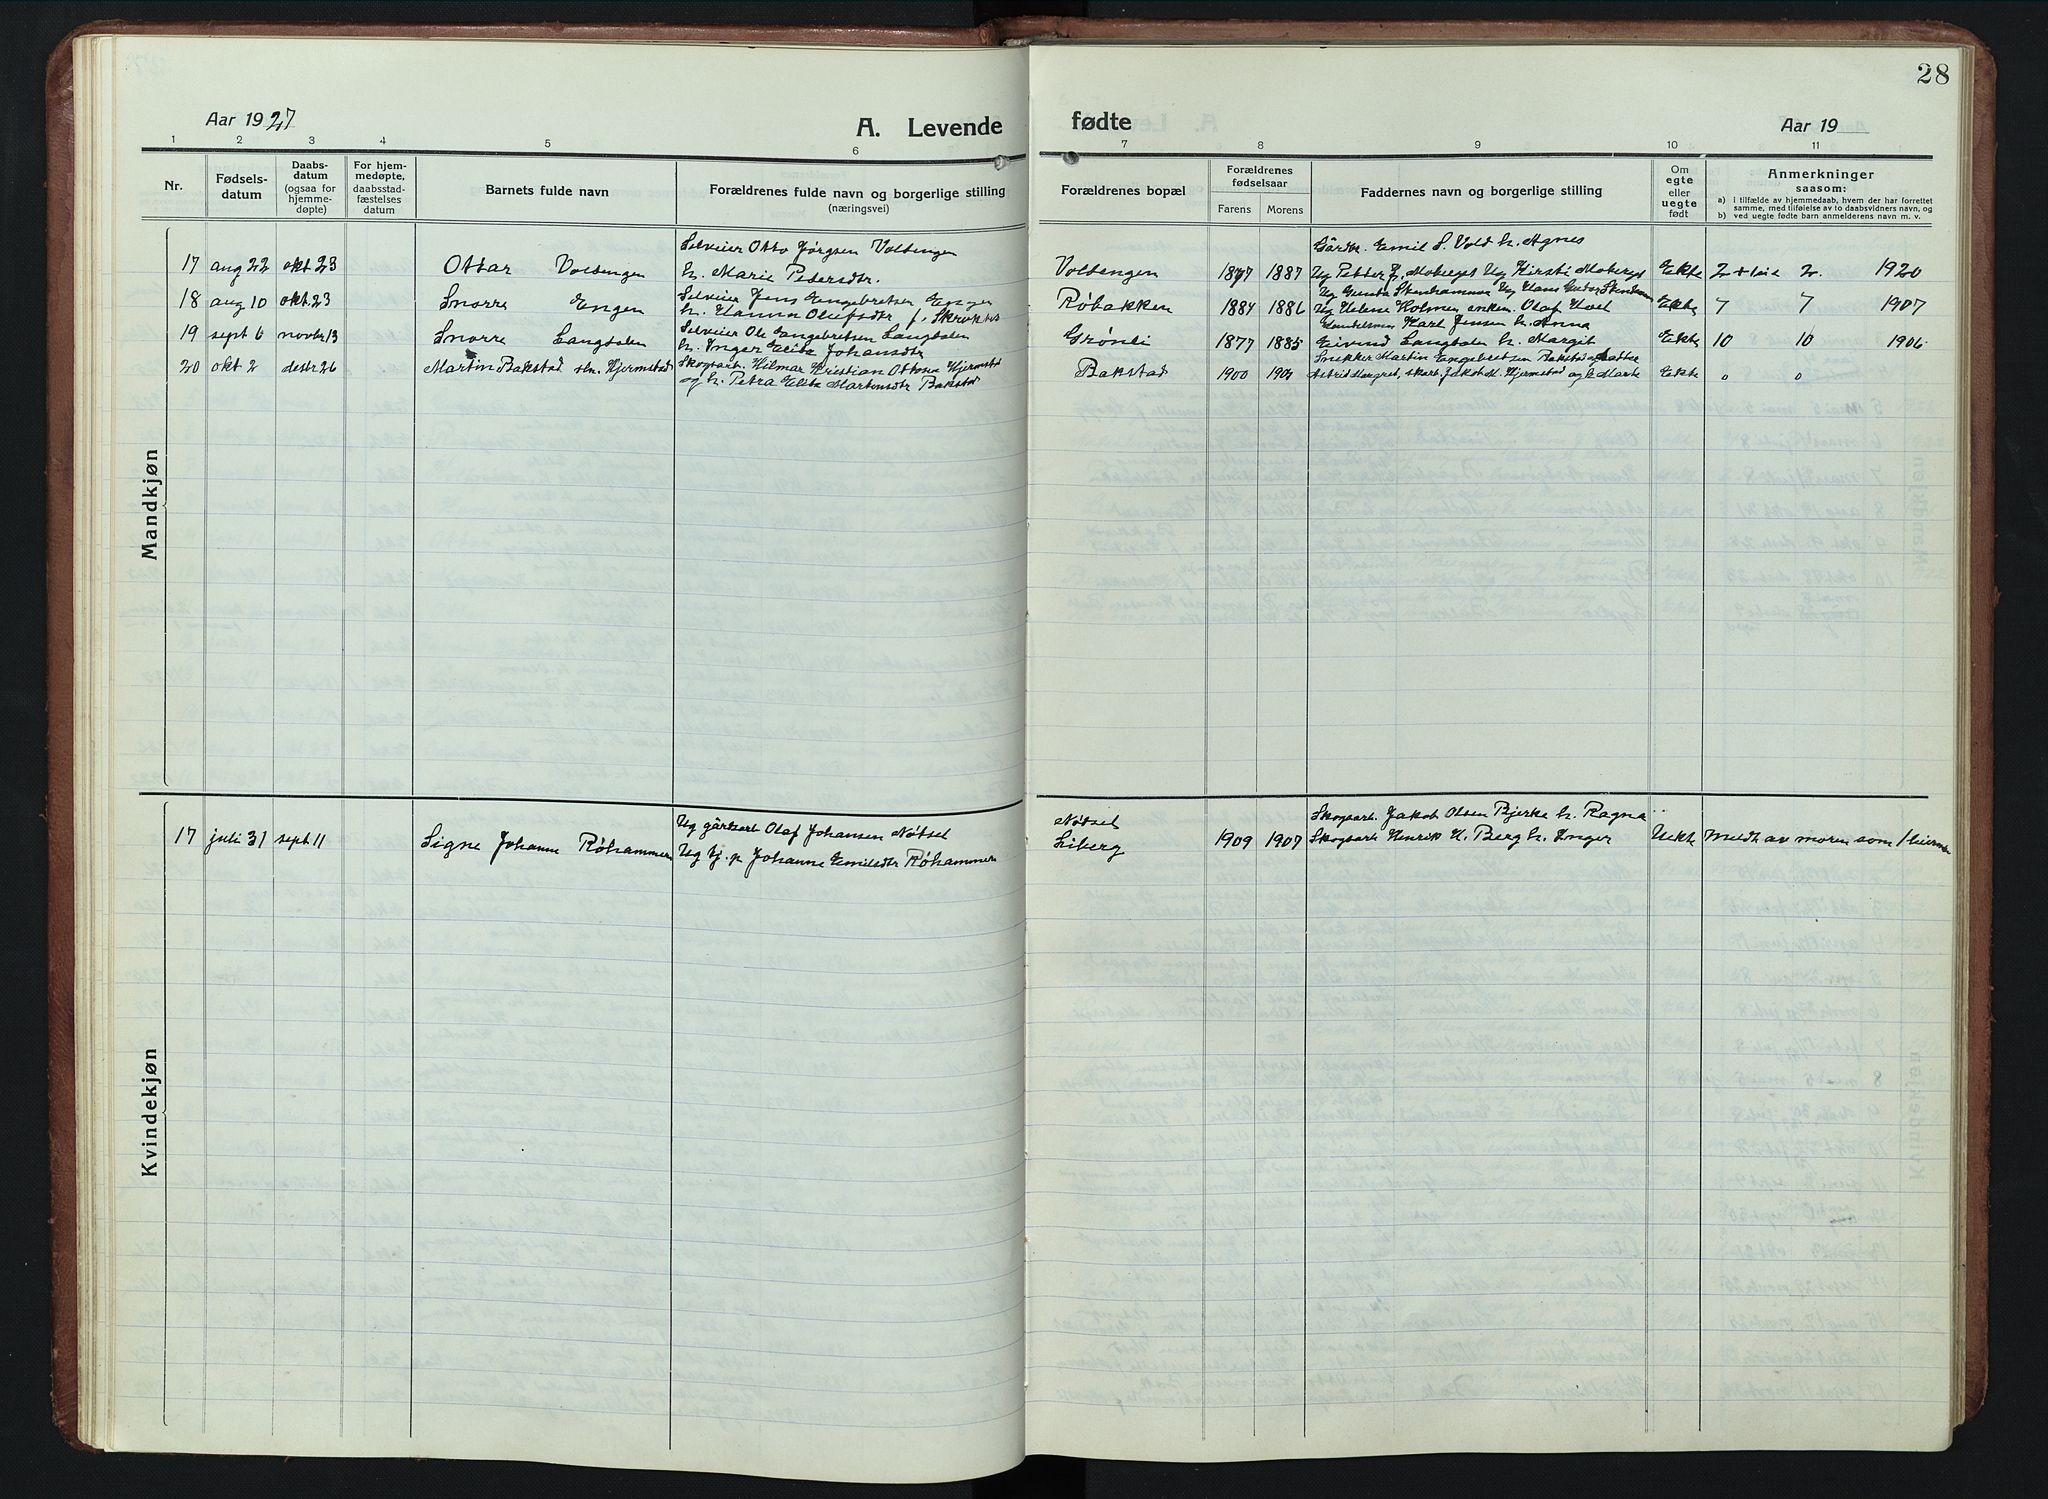 28
Aar 1927
A. Levende
fødte
Aar 19
1 2 3 4 5 6 7 8 9 10 11
Nr.
Fødsels-
datum
Daabs-
datum
(ogsaa for
hjemme-
døpte)
For hjem-
medøpte,
daabsstad-
fæstelses
datum
Barnets fulde navn
Forældrenes fulde navn og borgerlige stilling
(næringsvei)
Forældrenes bopæl
Forældrenes
fødselsaar
Farens Morens
Faddernes navn og borgerlige stilling
Om
egte
eller
uegte
født
Anmerkninger
saasom:
a) i tilfælde av hjemmedaab, hvem der har forrettet
samme, med tilføielse av to daabsvidners navn, og
b) ved uegte fødte barn anmelderens navn m. v.
Mandkjøn
Selveier Otto Jørgsen Voldengen Gårdbr. Emil S. Vold h. Agnes
17 aug 22 okt 23 Ottar Voldengen h. Marie Pedersdtr. Voldengen 1877 1887 Ug Petter Moberget Ug Kirsti Moberget Ekte 2 2. 1920
Selveier Jens Engebretsen Engen
18 aug 10 okt. 23 Snorre Engen h. Hanna Olufsdtr f. Røbakken 1884 1886 Ug Helene Holmen enkem. Olaf Ekte 7 7 1907
Selveier Ole Engebretsen Langdalen Karl Jensen h. Anna
19 sept 6 novbr 13 Snorre Langdalen h. Inger Elise Johansdtr Grønli 1877 1885 Eivind Langdalen h. Margit Ekte 10 10 1906
Skogsarb. Hilmar Kristian Ottosen Hjermstad Snekker Martin Engebretsen Bakstad og datter
20 okt 2 desbr 26 Martin Bakstad Hjermstad og h. Petra Elise Martinsdtr Bakstad Bakstad 1900 Astrid Margret, skarb. Jakob M. Hjermstad og h. Marte Ekte 0 0
Kvindekjøn
Ug gårdsarb Olaf Johansen Nødsel Nødsel Skogsarb. Jakob Olsen Bjerke h. Ragna
17 juli 31 sept 11 Signe Johanne Røhammeren Ug tj. p. Johanne Emilsdtr Røhammeren Liberg 1909 1907 Skogsarb. Henrik H. Berg h. Inger Uekte Medt av moren som